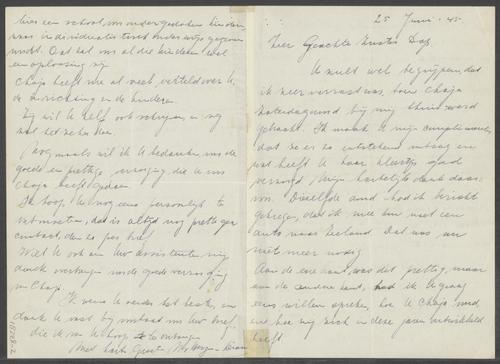 25 Juni 45.
Zeer Geachte Zuster Day
U zult wel begrijpen dat
ik zeer verrast was, toen Chaja
Zaterdagavond bij mij thuis werd
gebracht. Ik maak U mijn compliment
dat ze er zo uitstekend uitzag en
wat heeft U haar kleertjes goed
verzorgd. Mijn hartelijke dank daar-
voor. Diezelfde avond had ik bericht
gekregen, dat ik mee kon met een
auto naar Zeeland. Dat was nu
niet meer nodig
Aan de ene kant was dit prettig, maar
aan de andere kant, had ik U graag
eens willen spreken, hoe U Chaja vond,
en hoe zij zich in deze jaren ontwikkeld
heeft
hier een school, ons ondergedoken kinderen,
waar individueel onderwijs gegeven
wordt. Dat zal ons al die kinderen wel
een oplossing zijn
Chaja heeft me al veel verteld over U
de inrichting en de kinderen.
Zij wil U zelf ook schrijven en zij
zal het zelf doen
Nogmaals wil ik U bedanken voor de
goede en prettige verzorging die U aan
Chaja heeft gedaan.
Ik hoop U nog eens persoonlijk te
ontmoeten, dat is altijd nog prettiger
contact, dan zo per brief
Wilt U ook aan Uw assistenten mijn
dank overbrengen voor de goede verzorging
van Chaja.
Ik wens U verder het beste, en
dank U wel bij voorbaat voor Uw brief,
die ik van U hoop te ontvangen
Met hart. Groeten